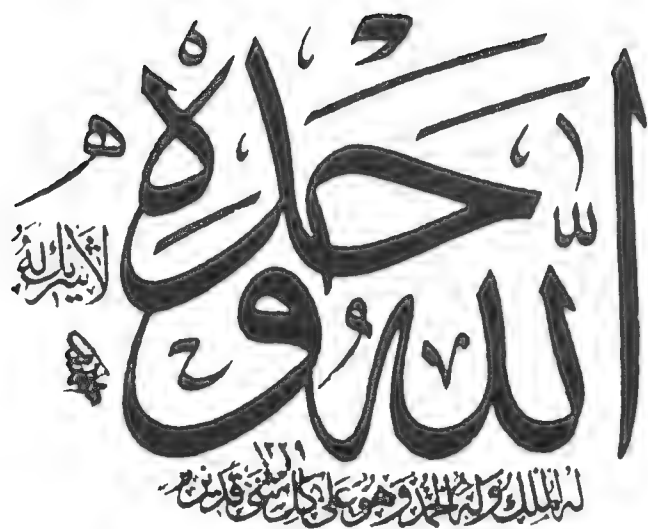 الله وحده
لا شريك له
١٢٢٩
له الملك وله الحمد وهو على كل شئ قدير